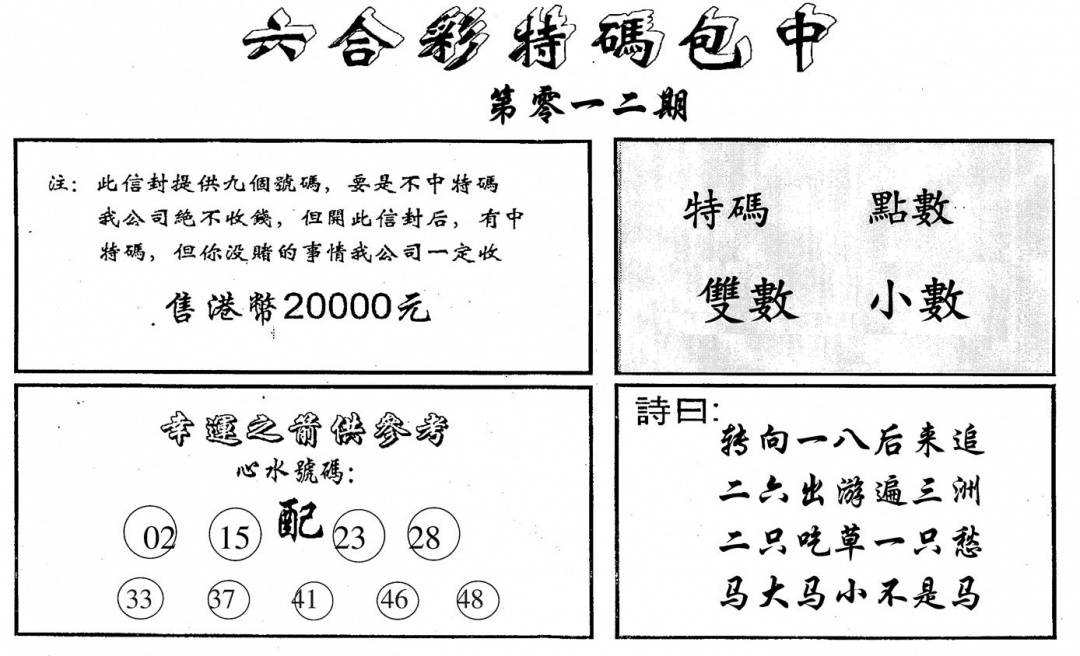 六合彩特碼包中
第零一二期
注：此信封提供九個號碼，要是不中特碼
我公司絕不收錢，但開此信封后，有中
特碼，但你没賭的事情我公司一定收
售港幣20000元
特碼 點數
雙數 小數
幸運之箭供參考
心水號碼：
02 15 配 23 28
33 37 41 46 48
詩曰：
转向一八后来追
二六出游遍三洲
二只吃草一只愁
马大马小不是马